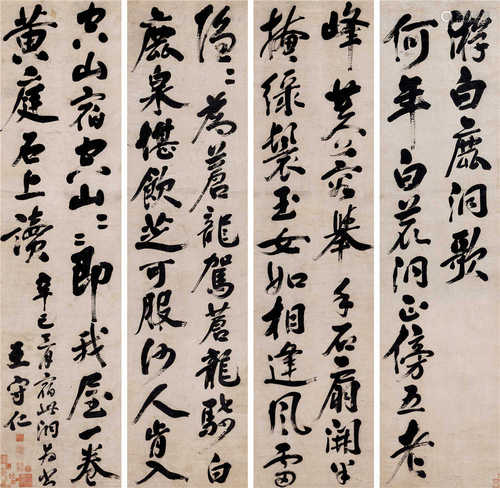 游白鹿洞歌
何年白鹿洞正傍五老
峰芙蓉舉手石扇開半
掩綠鬟玉女如相逢風雷
隱〻為蒼龍駕蒼龍騎白
鹿泉堪飲芝可服何人肯入
空山宿空山〻〻即我屋一卷
黃庭石上讀
辛巳三月宿此洞
王守仁